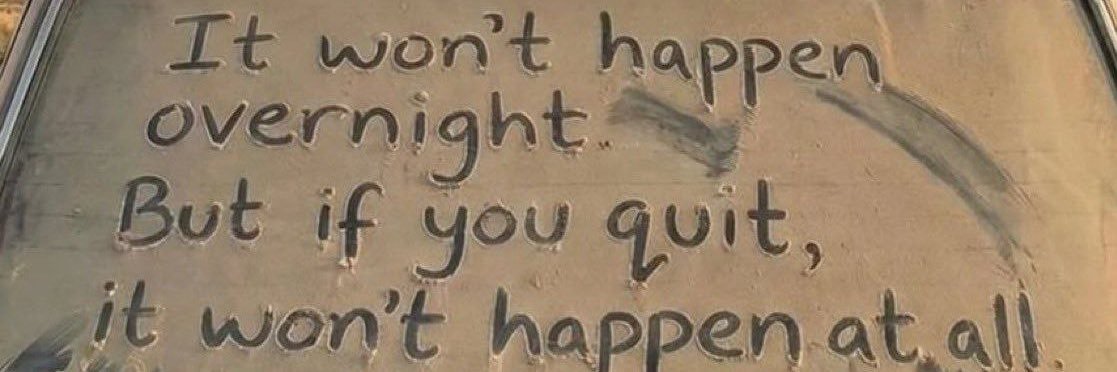 It won't happen
overnight.
But if you quit,
it won't happen at all.